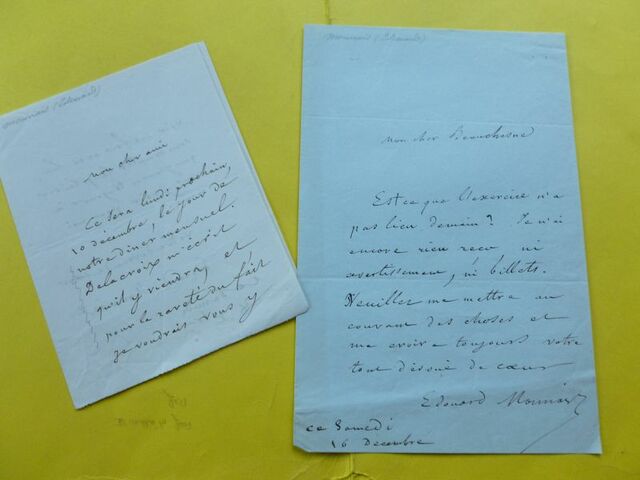 mon cher ami
Ce sera lundi prochain,
10 décembre, le jour de
notre diner mensuel.
Delacroix m'écrit
qu'il y viendra, et
pour la rareté du fait
je voudrais vous y
mon cher Beauchesne
Est ce que l'exercice n'a
pas lieu demain? Je n'ai
encore rien reçu ni
avertissement, ni billets.
Veuillez me mettre au
courant des choses et
me croire toujours votre
tout dévoué de cœur
Edouard Monnais
ce Samedi
16 Décembre